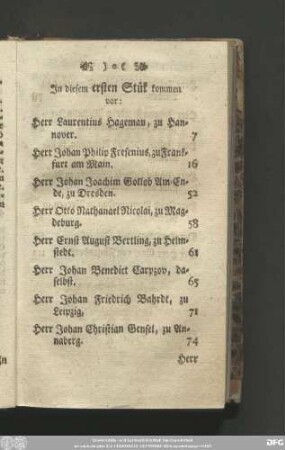 ) o (
In diesem ersten Stük kommen
vor:
Herr Laurentius Hageman, zu Han-
nover. 7
Herr Johan Philip Fresenius, zu Frank-
furt am Main. 16
Herr Johan Joachim Gotlob Am-En-
de, zu Dresden. 52
Herr Otto Nathanael Nicolai, zu Mag-
deburg. 58
Herr Ernst August Bertling, zu Helm-
stedt. 61
Herr Johan Benedict Carpzov, da-
selbst. 65
Herr Johan Friedrich Bahrdt, zu
Leipzig, 71
Herr Johan Christian Gensel, zu An-
naberg. 74
Herr
DFG